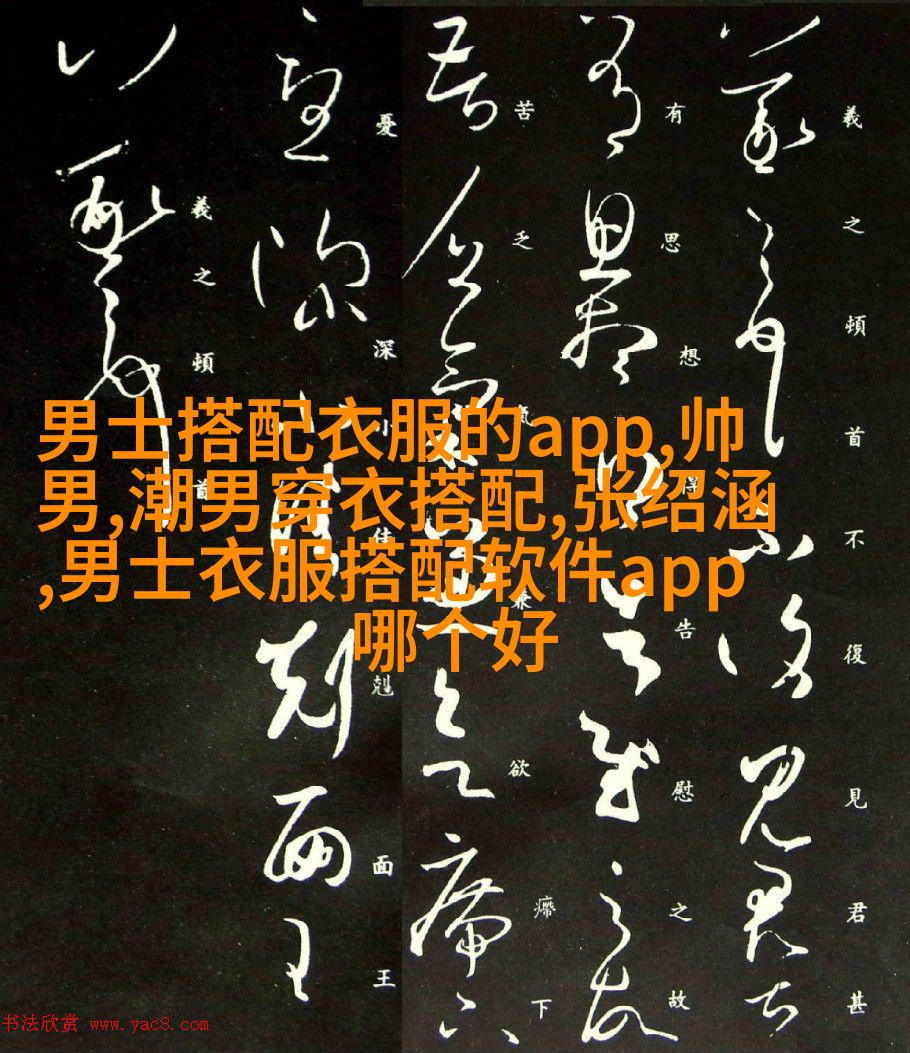 羲之頓首不復見君甚
有思想得告慰之故
苦乏氣兼欲㿃下
憂深小佳剋面王
羲之頓首
男士搭配衣服的app,帅
男,潮男穿衣搭配,张绍涵
,男士衣服搭配软件app
哪个好
书法欣赏 www.yac8.com